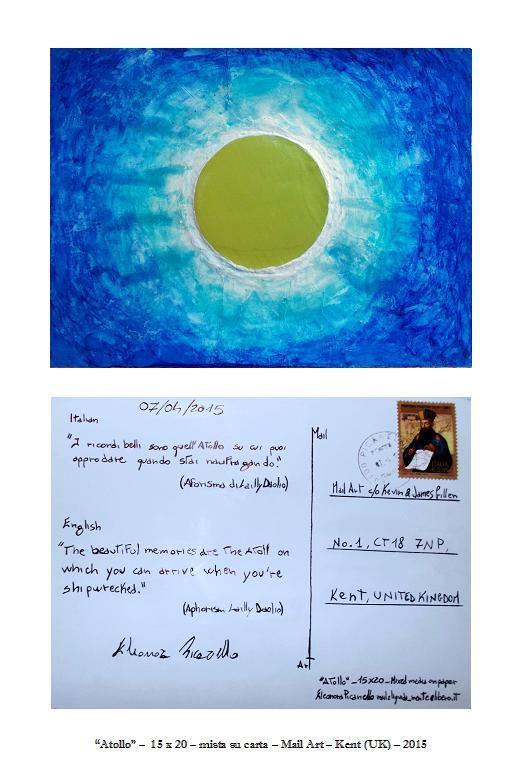 07/04/2015
Italian
"I ricordi belli sono quell'Atollo su cui puoi
approdare quando stai naufragando."
(Aforisma di Lailly Daolio)
English
"The beautiful memories are the Atoll on
which you can arrive when you're
shipwrecked."
(Aphorism Lailly Daolio)
Mail
Art
ITALIA
Mail Art c/o Kevin & James
No.1, CT18 7NP,
Kent, UNITED KINGDOM
"Atollo" - 15x20 - Mixed media on paper
"Atollo" – 15 x 20 – mista su carta – Mail Art – Kent (UK) – 2015